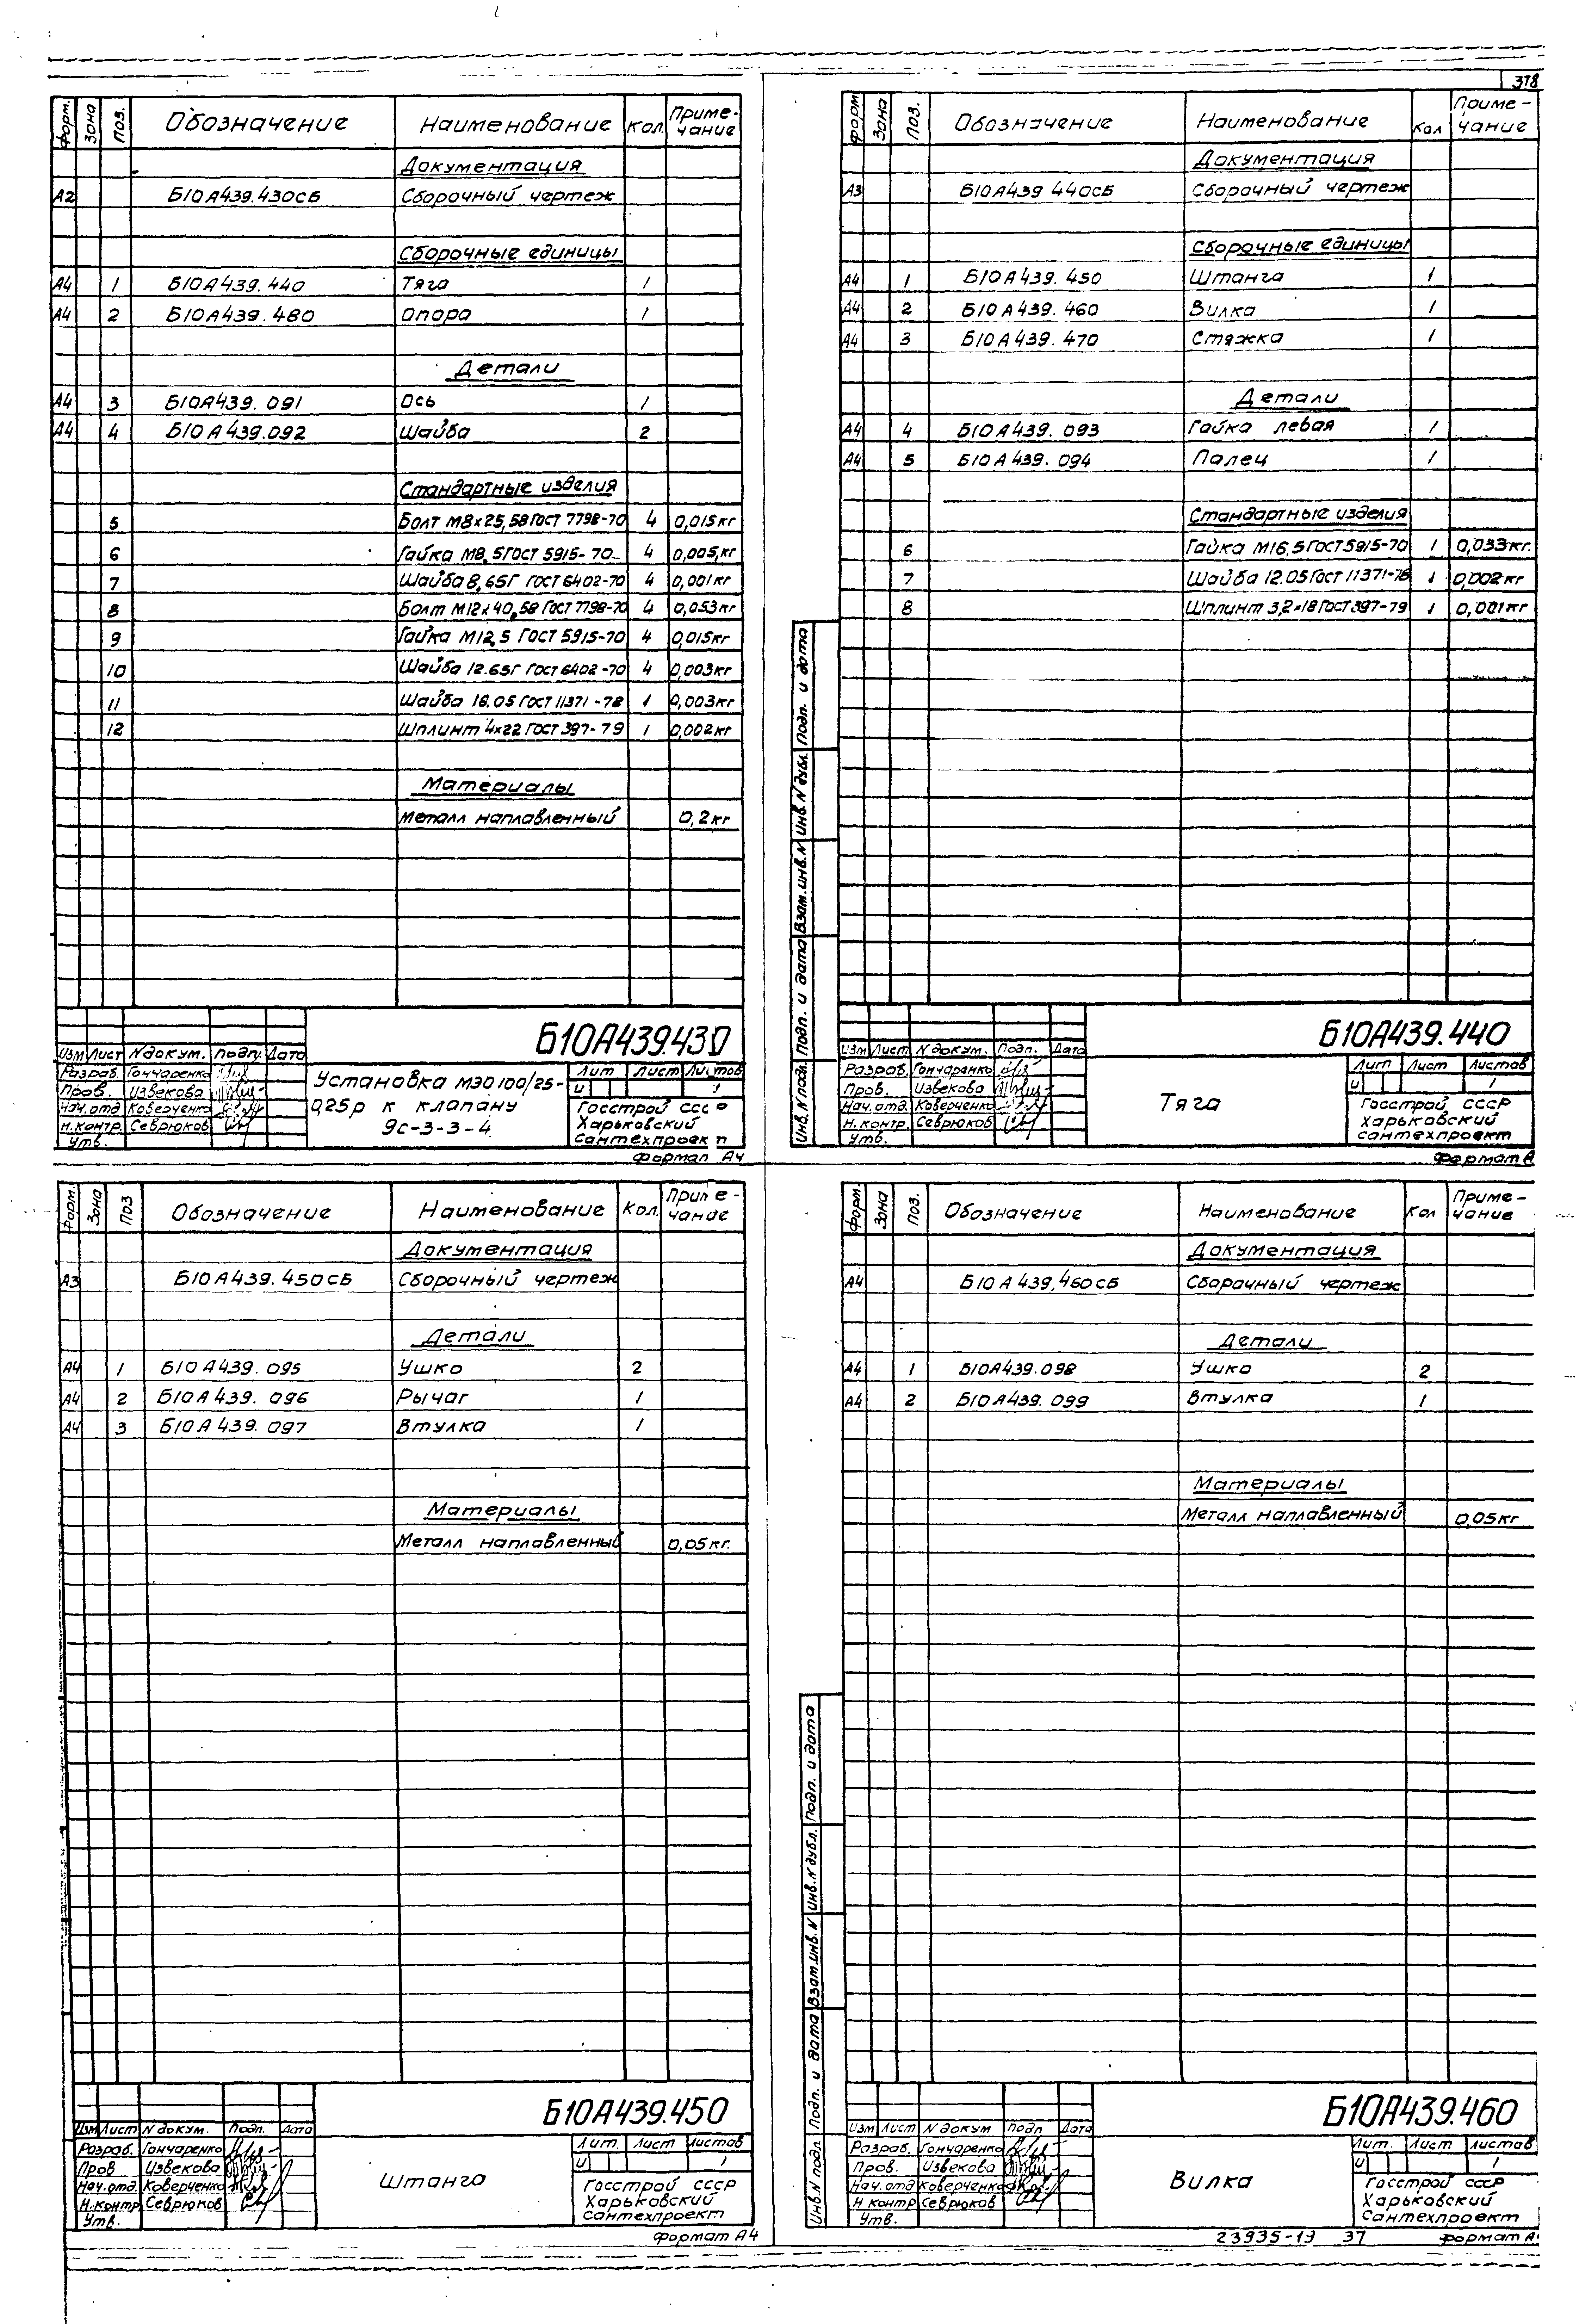 318
Форм. Зона Поз. Обозначение Наименование Кол. Приме-чание
Документация
А2 Б10А439.430СБ Сборочный чертеж
Сборочные единицы
А4 1 Б10А439.440 Тяга 1
А4 2 Б10А439.480 Опора 1
Детали
А4 3 Б10А439.091 Ось 1
А4 4 Б10А439.092 Шайба 2
Стандартные изделия
5 Болт М8×25,58 ГОСТ 7798-70 4 0,015кг
6 Гайка М8,5 ГОСТ 5915-70 4 0,005,кг
7 Шайба 8,65Г ГОСТ 6402-70 4 0,001кг
8 Болт М12×40,58 ГОСТ 7798-70 4 0,053кг
9 Гайка М12,5 ГОСТ 5915-70 4 0,015кг
10 Шайба 12.65Г ГОСТ 6402-70 4 0,003кг
11 Шайба 16.05 ГОСТ 11371-78 1 0,003кг
12 Шплинт 4×22 ГОСТ 397-79 1 0,002кг
Материалы
Металл наплавленный 0,2кг
Б10А439.430
Изм Лист N докум. Подп. Дата
Разраб. Гончаренко
Пров. Извекова
Нач.отд Коверченко
Н.контр. Севрюков
Утв.
Установка МЭО 100/25-
0,25р к клапану
9с-3-3-4
Лит Лист Листов
И 1
Госстрой СССР
Харьковский
Сантехпроект
Формат А4
Форм Зона Поз. Обозначение Наименование Кол Приме-чание
Документация
А3 Б10А439 440СБ Сборочный чертеж
Сборочные единицы
А4 1 Б10А439.450 Штанга 1
А4 2 Б10А439.460 Вилка 1
А4 3 Б10А439.470 Стяжка 1
Детали
А4 4 Б10А439.093 Гайка левая 1
А4 5 Б10А439.094 Палец 1
Стандартные изделия
6 Гайка М16,5 ГОСТ 5915-70 1 0,033кг.
7 Шайба 12.05 ГОСТ 11371-78 1 0,002кг
8 Шплинт 3,2×18 ГОСТ 397-79 1 0,001кг
Инв.N подл. Подп. и дата Взам.инв.N Инв.N дубл. Подп. и дата
Б10А439.440
Изм Лист N докум. Подп. Дата
Разраб. Гончаренко
Пров. Извекова
Нач.отд. Коверченко
Н.контр. Севрюков
Утв.
Тяга
Лит Лист Листов
И 1
Госстрой СССР
Харьковский
Сантехпроект
Формат А
Форм. Зона Поз Обозначение Наименование Кол. Приме-чание
Документация
А3 Б10А439.450СБ Сборочный чертеж
Детали
А4 1 Б10А439.095 Ушко 2
А4 2 Б10А439.096 Рычаг 1
А4 3 Б10А439.097 Втулка 1
Материалы
Металл наплавленный 0,05кг.
Б10А439.450
Изм Лист N докум. Подп. Дата
Разраб. Гончаренко
Пров Извекова
Нач.отд. Коверченко
Н.контр Севрюков
Утв.
Штанга
Лит. Лист Листов
И 1
Госстрой СССР
Харьковский
Сантехпроект
Формат А4
Форм. Зона Поз. Обозначение Наименование Кол Приме-чание
Документация
А4 Б10А439,460СБ Сборочный чертеж
Детали
А4 1 Б10А439.098 Ушко 2
А4 2 Б10А439.099 Втулка 1
Материалы
Металл наплавленный 0,05кг
Инв.N подл Подп. и дата Взам.инв.N Инв.N дубл. Подп. и дата
Б10А439.460
Изм Лист N докум Подп Дата
Разраб. Гончаренко
Пров. Извекова
Нач.отд Коверченко
Н контр Севрюков
Утв.
Вилка
Лит. Лист Листов
И 1
Госстрой СССР
Харьковский
Сантехпроект
23935-19 37 Формат А4